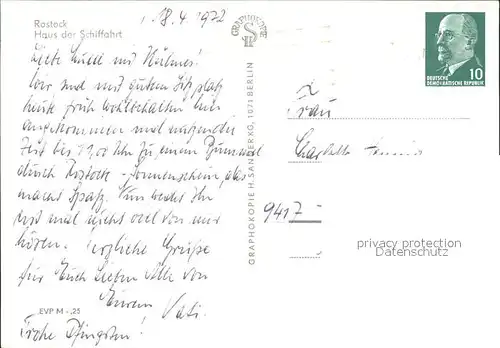 Rostock
Haus der Schiffahrt
18.4.1972
Liebe und
Wir sind mit gutem Sitzplatz
heute früh wohlbehalten hier
angekommen und
Zeit bis Uhr zu einem Bummel
durch Rostock - Sonnenschein, das
macht Spaß. Nun werdet Ihr
erst mal nicht viel von mir
hören. Herzliche Grüße
für Euch Lieben Alle von
Eurem Vati.
Frohe Pfingsten!
EVP M -,25
GRAPHOKOPIE
GRAPHOKOPIE H. SANDER KG, 1071 BERLIN
10
DEUTSCHE
DEMOKRATISCHE REPUBLIK
Frau
Charlotte
9417
privacy protection
Datenschutz